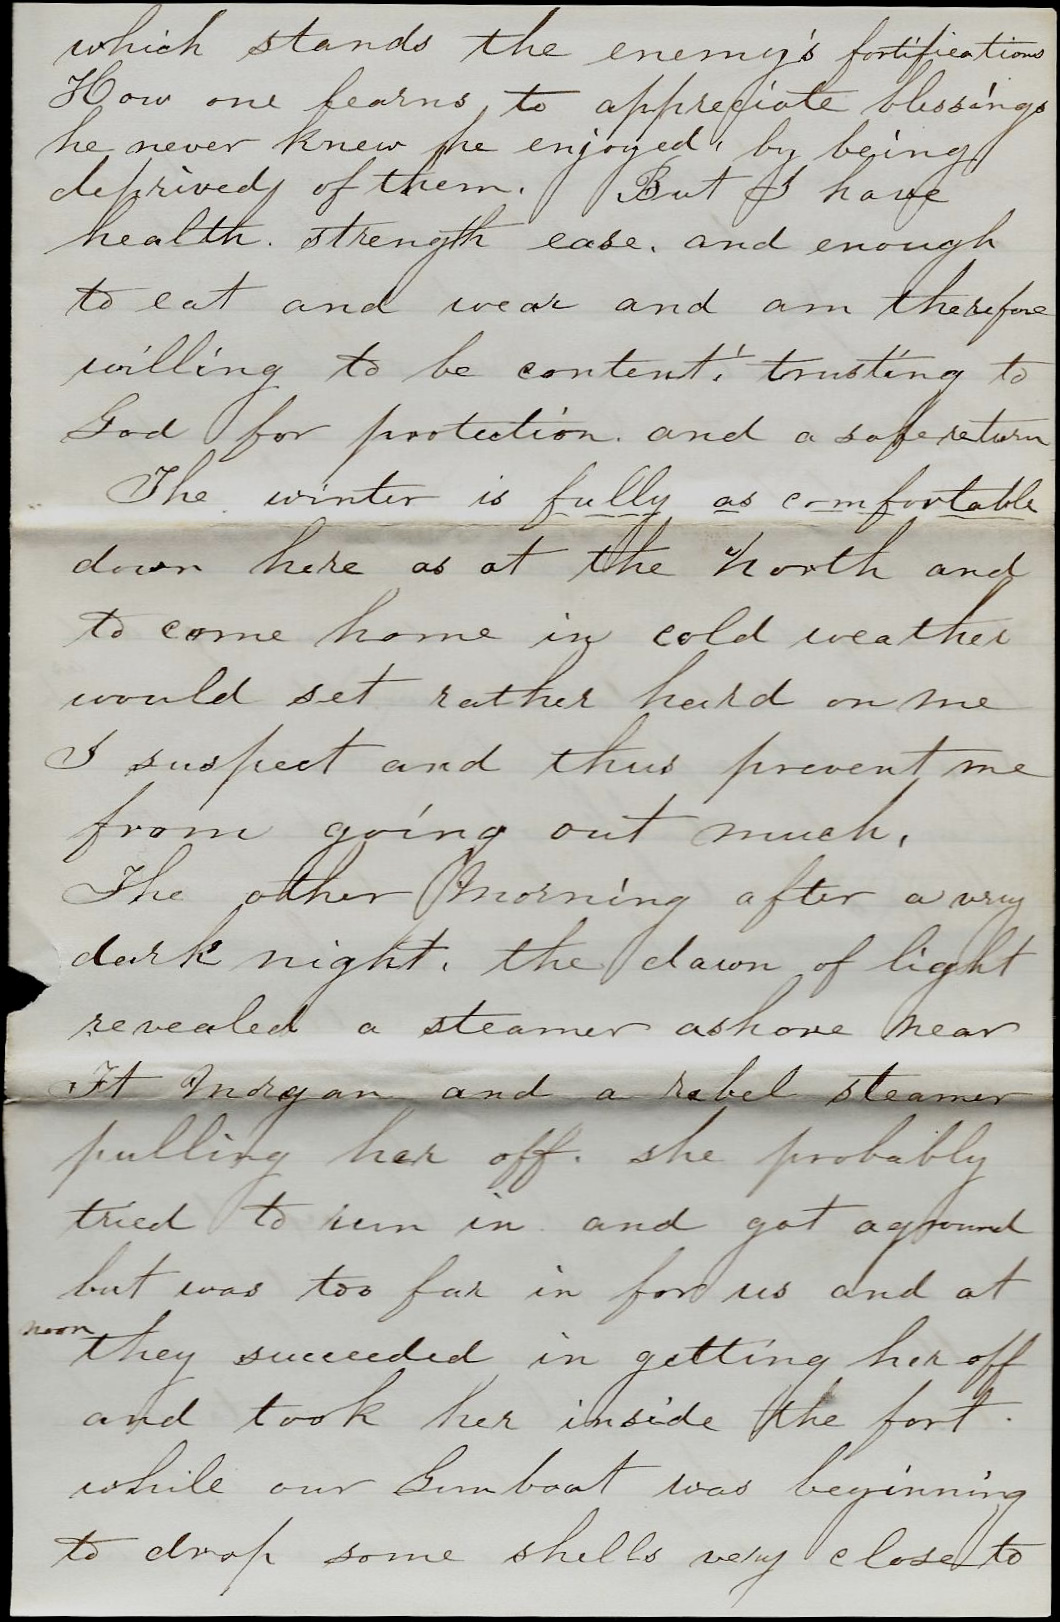 which stands the enemy's fortifications
How one learns, to appreciate blessings
he never knew he enjoyed, by being
deprived of them. But I have
health. strength ease. and enough
to eat and wear and am therefore
willing to be content, trusting to
God for protection. and a safe return
The winter is fully as comfortable
down here as at the North and
to come home in cold weather
would set rather hard on me
I suspect and thus prevent me
from going out much.
The other Morning after a very
dark night. the dawn of light
revealed a steamer ashore near
Ft Morgan and a rebel steamer
pulling her off. she probably
tried to run in and got aground
but was too far in for us and at
noon they succeeded in getting her off
and took her inside the fort.
while our Gunboat was beginning
to drop some shells very close to